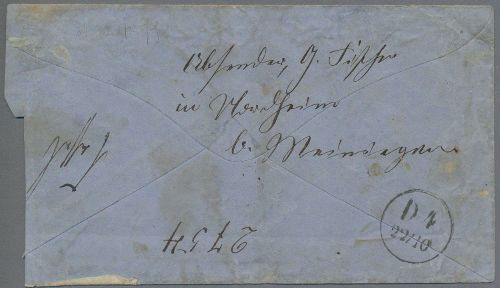 Absender, G. Fischer
in Nordheim
b. Meiningen
2754
D 4
22/10